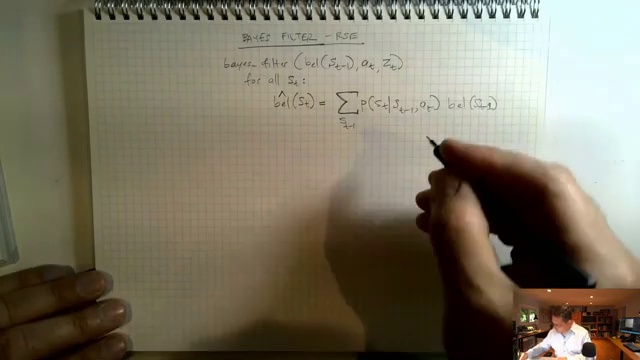 BAYES FILTER - RSE
bayes-filter (bel(S_{t-1}), a_t, z_t)
for all S_t:
bel^(S_t) = ∑_{S_{t-1}} P(S_t | S_{t-1}, a_t) bel(S_{t-1})